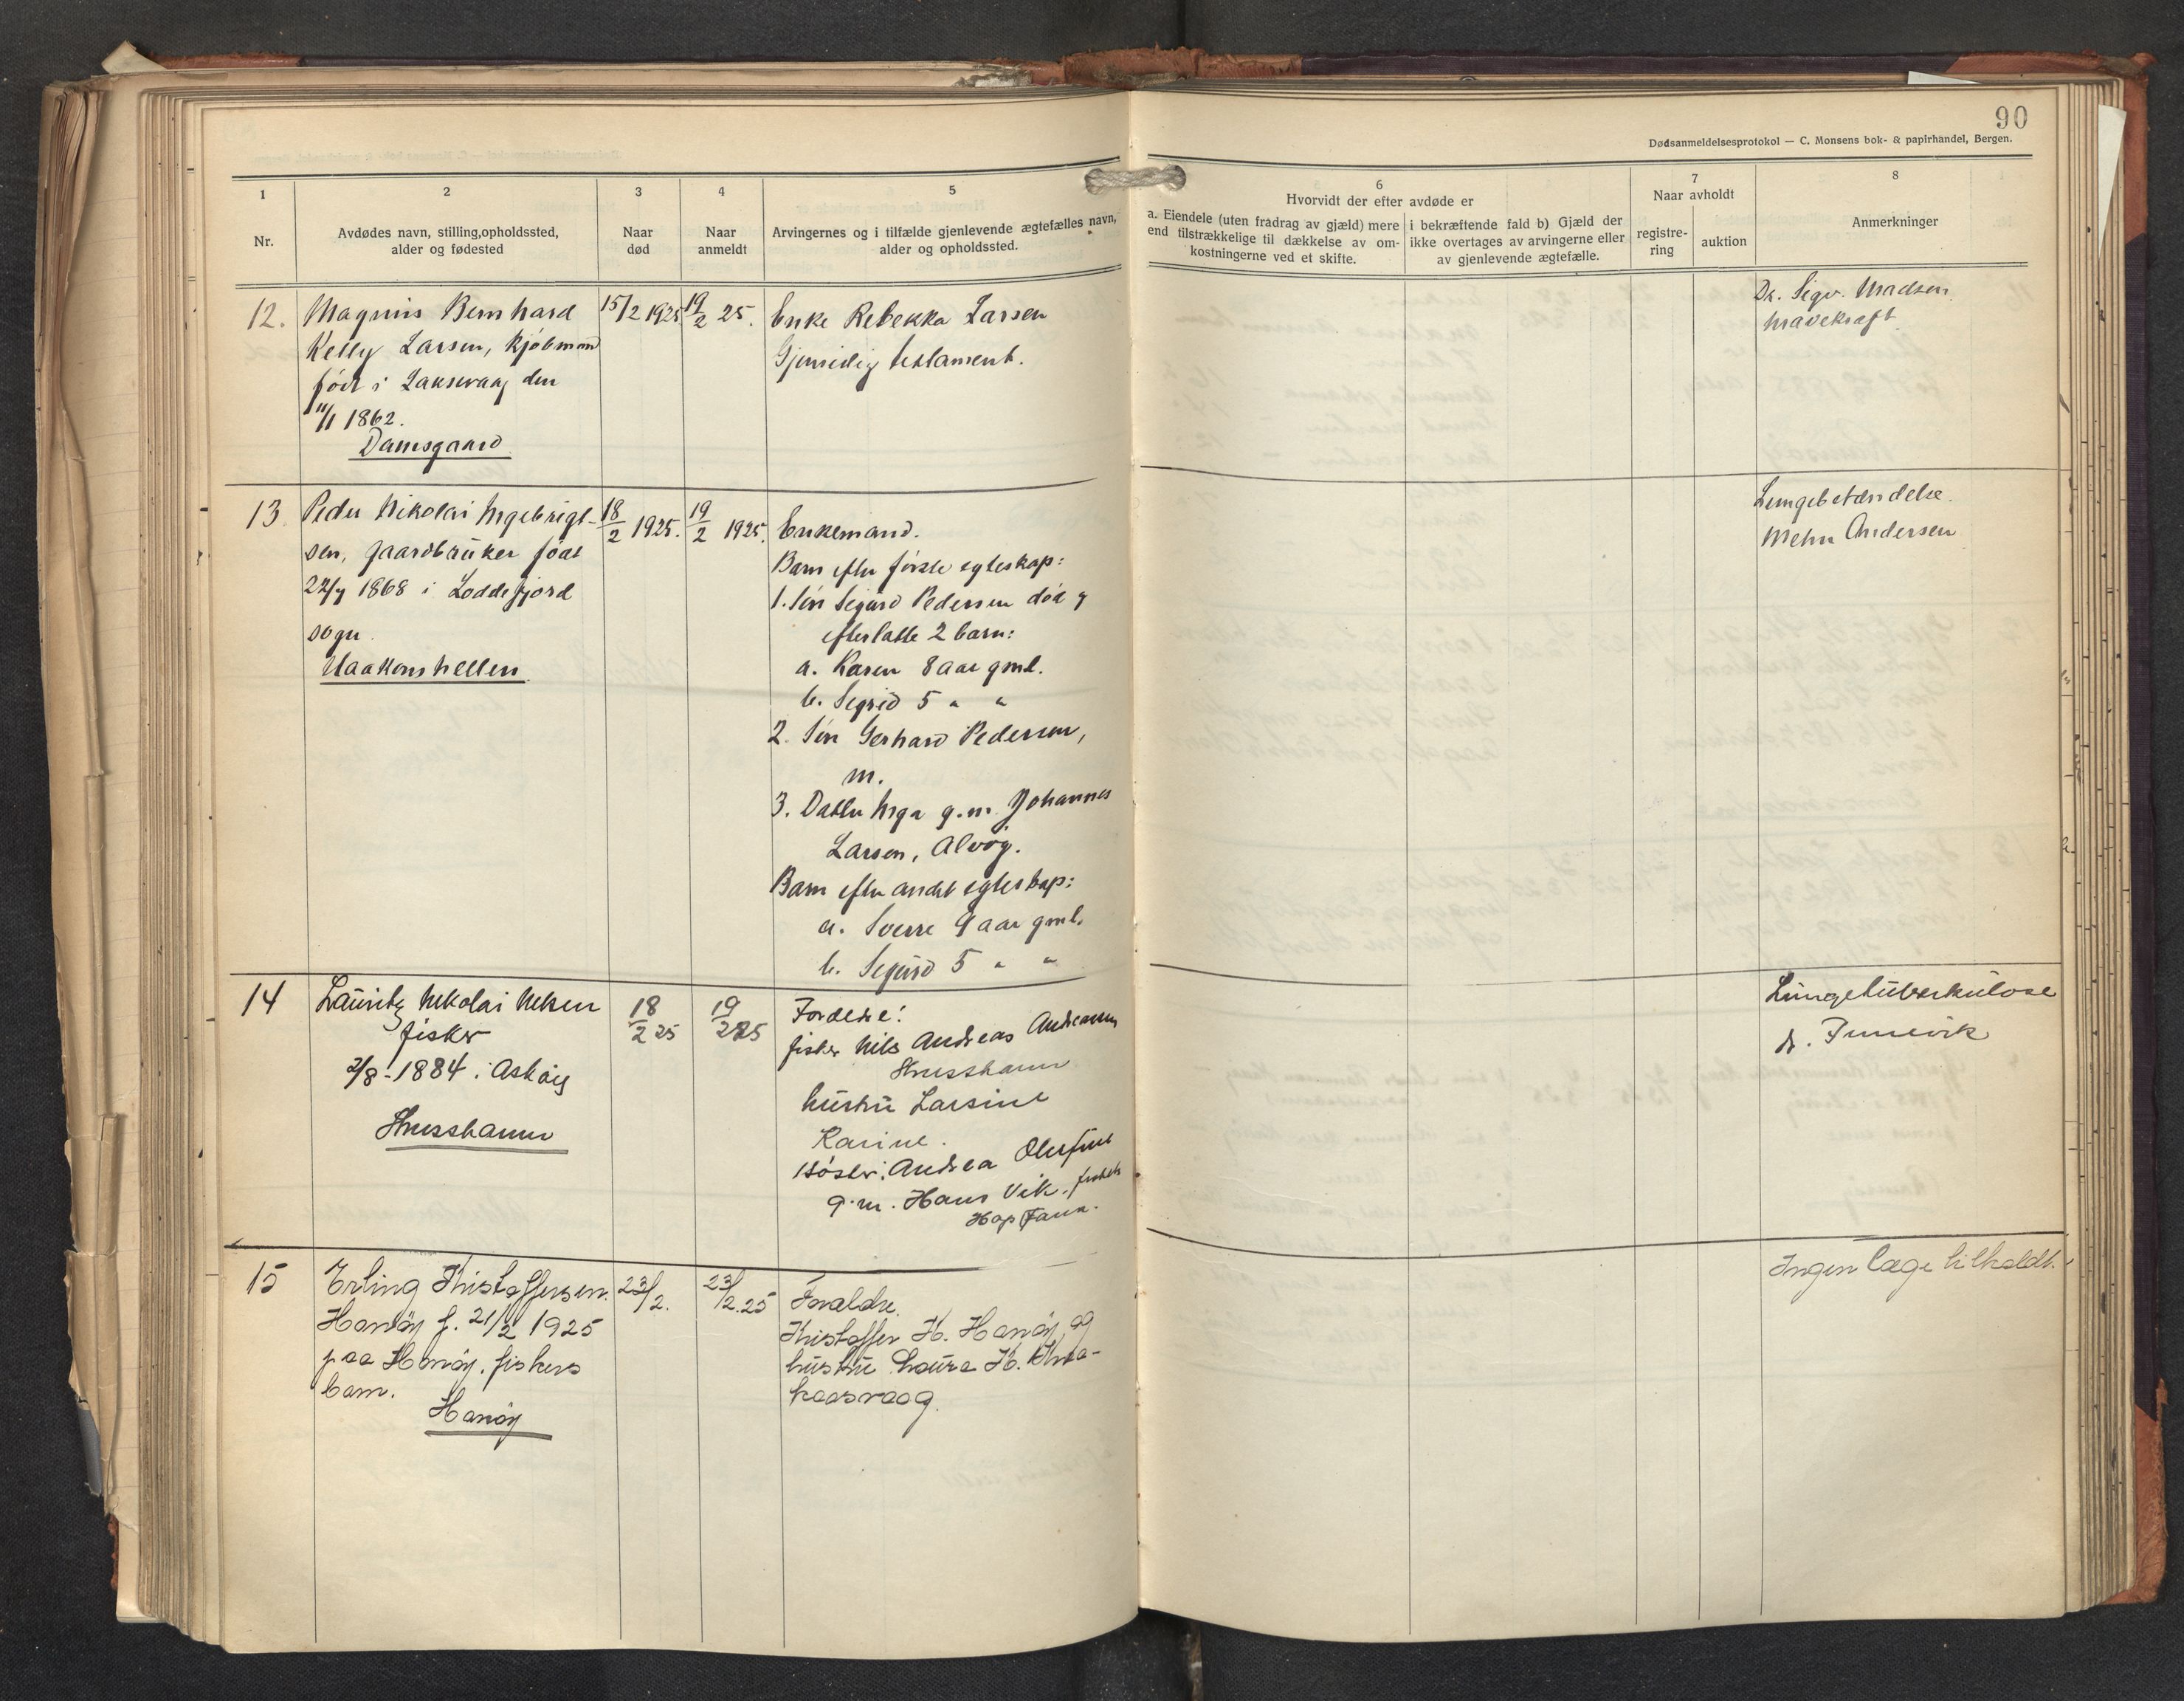 90
Dødsanmeldelsesprotokol — C. Monsens bok- & papirhandel, Bergen.
1
Nr.
2
Avdødes navn, stilling, opholdssted,
alder og fødested
3
Naar
død
4
Naar
anmeldt
5
Arvingernes og i tilfælde gjenlevende ægtefælles navn,
alder og opholdssted.
6
Hvorvidt der efter avdøde er
a. Eiendele (uten fradrag av gjæld) mere
end tilstrækkelige til dækkelse av om-
kostningerne ved et skifte.
i bekræftende fald b) Gjæld der
ikke overtages av arvingerne eller
av gjenlevende ægtefælle.
7
Naar avholdt
registre-
ring
auktion
8
Anmerkninger
12.
Magnus Bernhard
Kelly Larsen, kjøbmand
født i Laksevaag den
11/1 1862.
Damsgaard
15/2 1925
19/2 25.
Enke Rebekka Larsen
Gjensidig testament.
Dr. Sigv. Madsen
Mavekræft.
13.
Peder Nikolai Ingebrigt-
sen, gaardbruker født
1868 i Loddefjord
sogn.
Haakonshellen
18/2 1925.
19/2 1925.
Enkemand.
Barn efter første egteskap:
1. Søn Sigurd Pedersen død og
efterlatte 2 barn:
a. Karen 8 aar gml.
b. Sigrid 5 " "
2. Søn Gerhard Pedersen,
m.
3. Datter Inga g.m. Johannes
Larsen, Alvøy.
Barn efter andet egteskap:
a. Sverre 9 aar gml.
b. Sigurd 5 " "
Lungebetændelse.
Mehn Andersen
14
Lauritz Nikolai Nilsen
fisker
2/8-1884 i Askøy
Strusshamn
18/2 25
19/2 25
Forældre:
fisker Nils Andreas Andreassen
Strusshamn
hustru Larsine
Karine.
søster: Andrea Olufine
g.m. Hans Vik. fisker
Hop Fana.
Lungetuberkulose
dr. Tunevik
15
Erling Kristoffersen
Hanøy f. 21/2 1925
paa Hanøy. fiskers
barn.
Hanøy
23/2.
23/2.25
Forældre.
Kristoffer K. Hanøy, og
hustru Laura K.
Ingen læge tilkaldt.